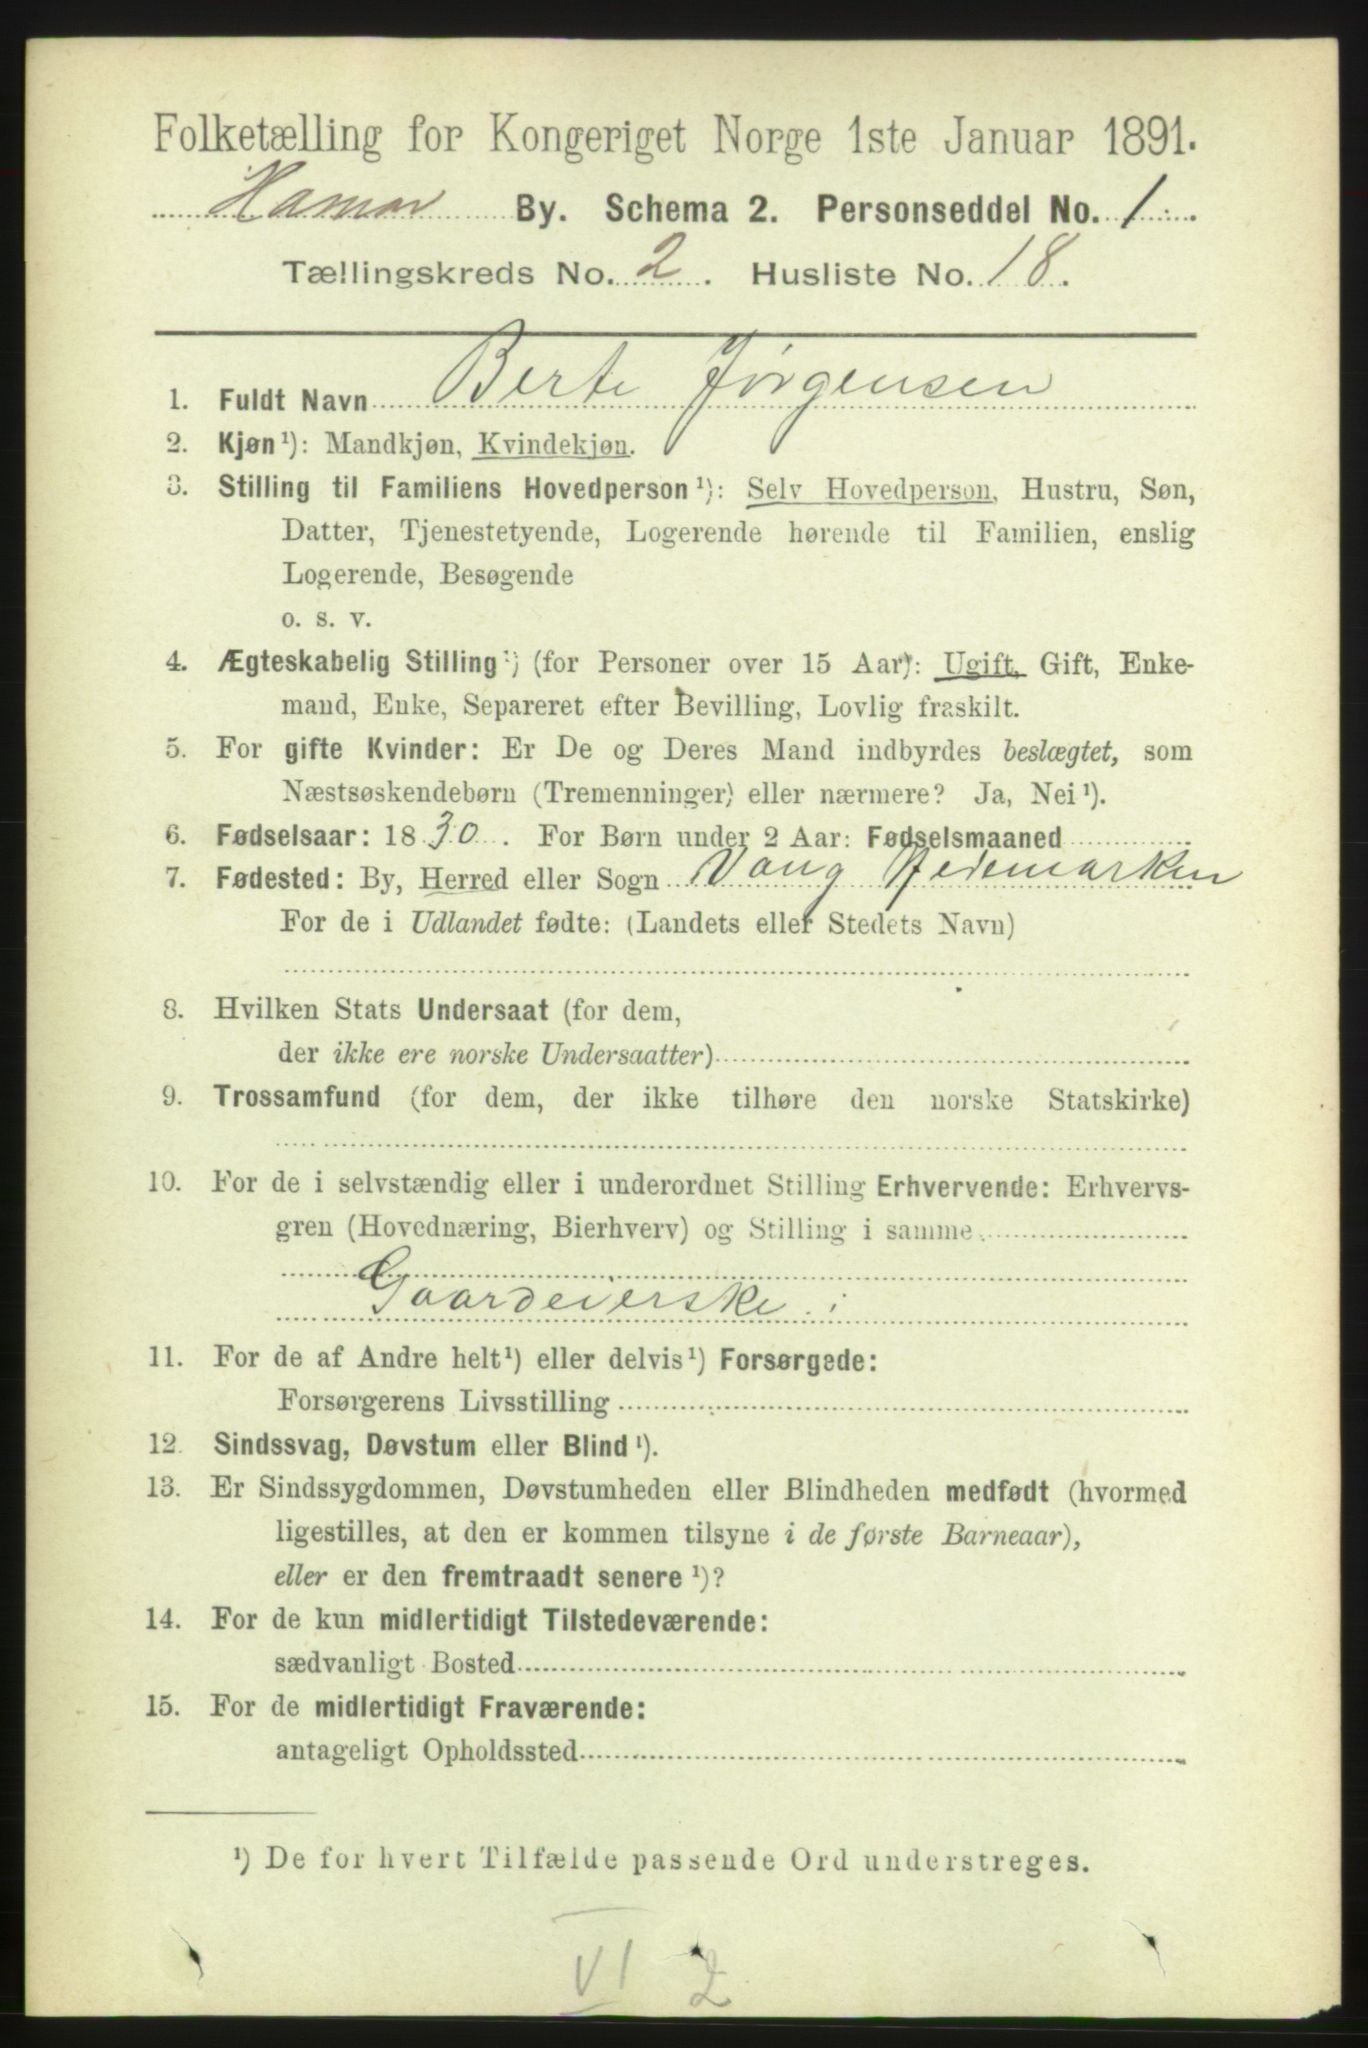 Folketælling for Kongeriget Norge 1ste Januar 1891.
Hamar By. Schema 2. Personseddel No. 1
Tællingskreds No. 2. Husliste No. 18.
1. Fuldt Navn Berte Jørgensen
2. Kjøn¹): Mandkjøn, Kvindekjøn.
3. Stilling til Familiens Hovedperson¹): Selv Hovedperson, Hustru, Søn,
Datter, Tjenestetyende, Logerende hørende til Familien, enslig
Logerende, Besøgende
o. s. v.
4. Ægteskabelig Stilling¹) (for Personer over 15 Aar): Ugift, Gift, Enke-
mand, Enke, Separeret efter Bevilling, Lovlig fraskilt.
5. For gifte Kvinder: Er De og Deres Mand indbyrdes beslægtet, som
Næstsøskendebørn (Tremenninger) eller nærmere? Ja, Nei¹).
6. Fødselsaar: 1830. For Børn under 2 Aar: Fødselsmaaned
7. Fødested: By, Herred eller Sogn Vang Hedemarken
For de i Udlandet fødte: (Landets eller Stedets Navn)
8. Hvilken Stats Undersaat (for dem,
der ikke ere norske Undersaatter)
9. Trossamfund (for dem, der ikke tilhøre den norske Statskirke)
10. For de i selvstændig eller i underordnet Stilling Erhvervende: Erhvervs-
gren (Hovednæring, Bierhverv) og Stilling i samme
Gaardeierske
11. For de af Andre helt¹) eller delvis¹) Forsørgede:
Forsørgerens Livsstilling
12. Sindssvag, Døvstum eller Blind¹).
13. Er Sindssygdommen, Døvstumheden eller Blindheden medfødt (hvormed
ligestilles, at den er kommen tilsyne i de første Barneaar),
eller er den fremtraadt senere¹)?
14. For de kun midlertidigt Tilstedeværende:
sædvanligt Bosted
15. For de midlertidigt Fraværende:
antageligt Opholdssted
¹) De for hvert Tilfælde passende Ord understreges.
VI 2